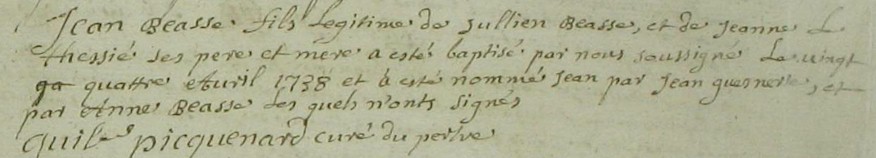 Jean Beasse fils legitime de Jullien Beasse, et de Jeanne Le
thessié ses pere et mere a esté baptisé par nous soussigné Le vingt
quattre Avril 1738 et à esté nommé Jean par Jean guesnerie, et
par Anne Beasse les quels n'onts signés
Picquenard curé du pertre